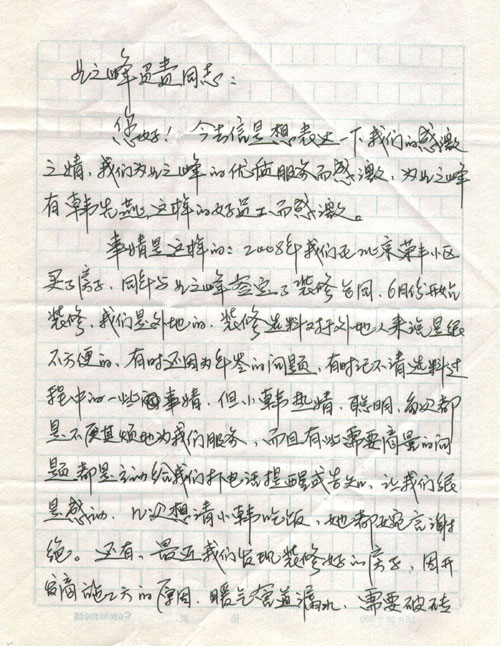 业之峰负责同志:
您好!今去信是想表达一下我们的感激
之情,我们为业之峰的优质服务而感激,为业之峰
有韩先燕这样的好员工而感激。
事情是这样的:2008年我们在北京荣丰小区
买了房子,同年与业之峰签定了装修合同,6月份开始
装修,我们是外地的,装修选料对外地人来说是很
不方便的,有时还因为年岁的问题,有时记不清选料过
程中的一些事情,但小韩热情、聪明,每次都
是不厌其烦地为我们服务,而且有些需要商量的问
题都是主动给我们打电话提醒或告知,让我们很
是感动,几次想请小韩吃饭,她都婉言谢
绝。还有,最近我们发现装修好的房子,因开
发商施工的原因,暖气管道漏水,需要破砖